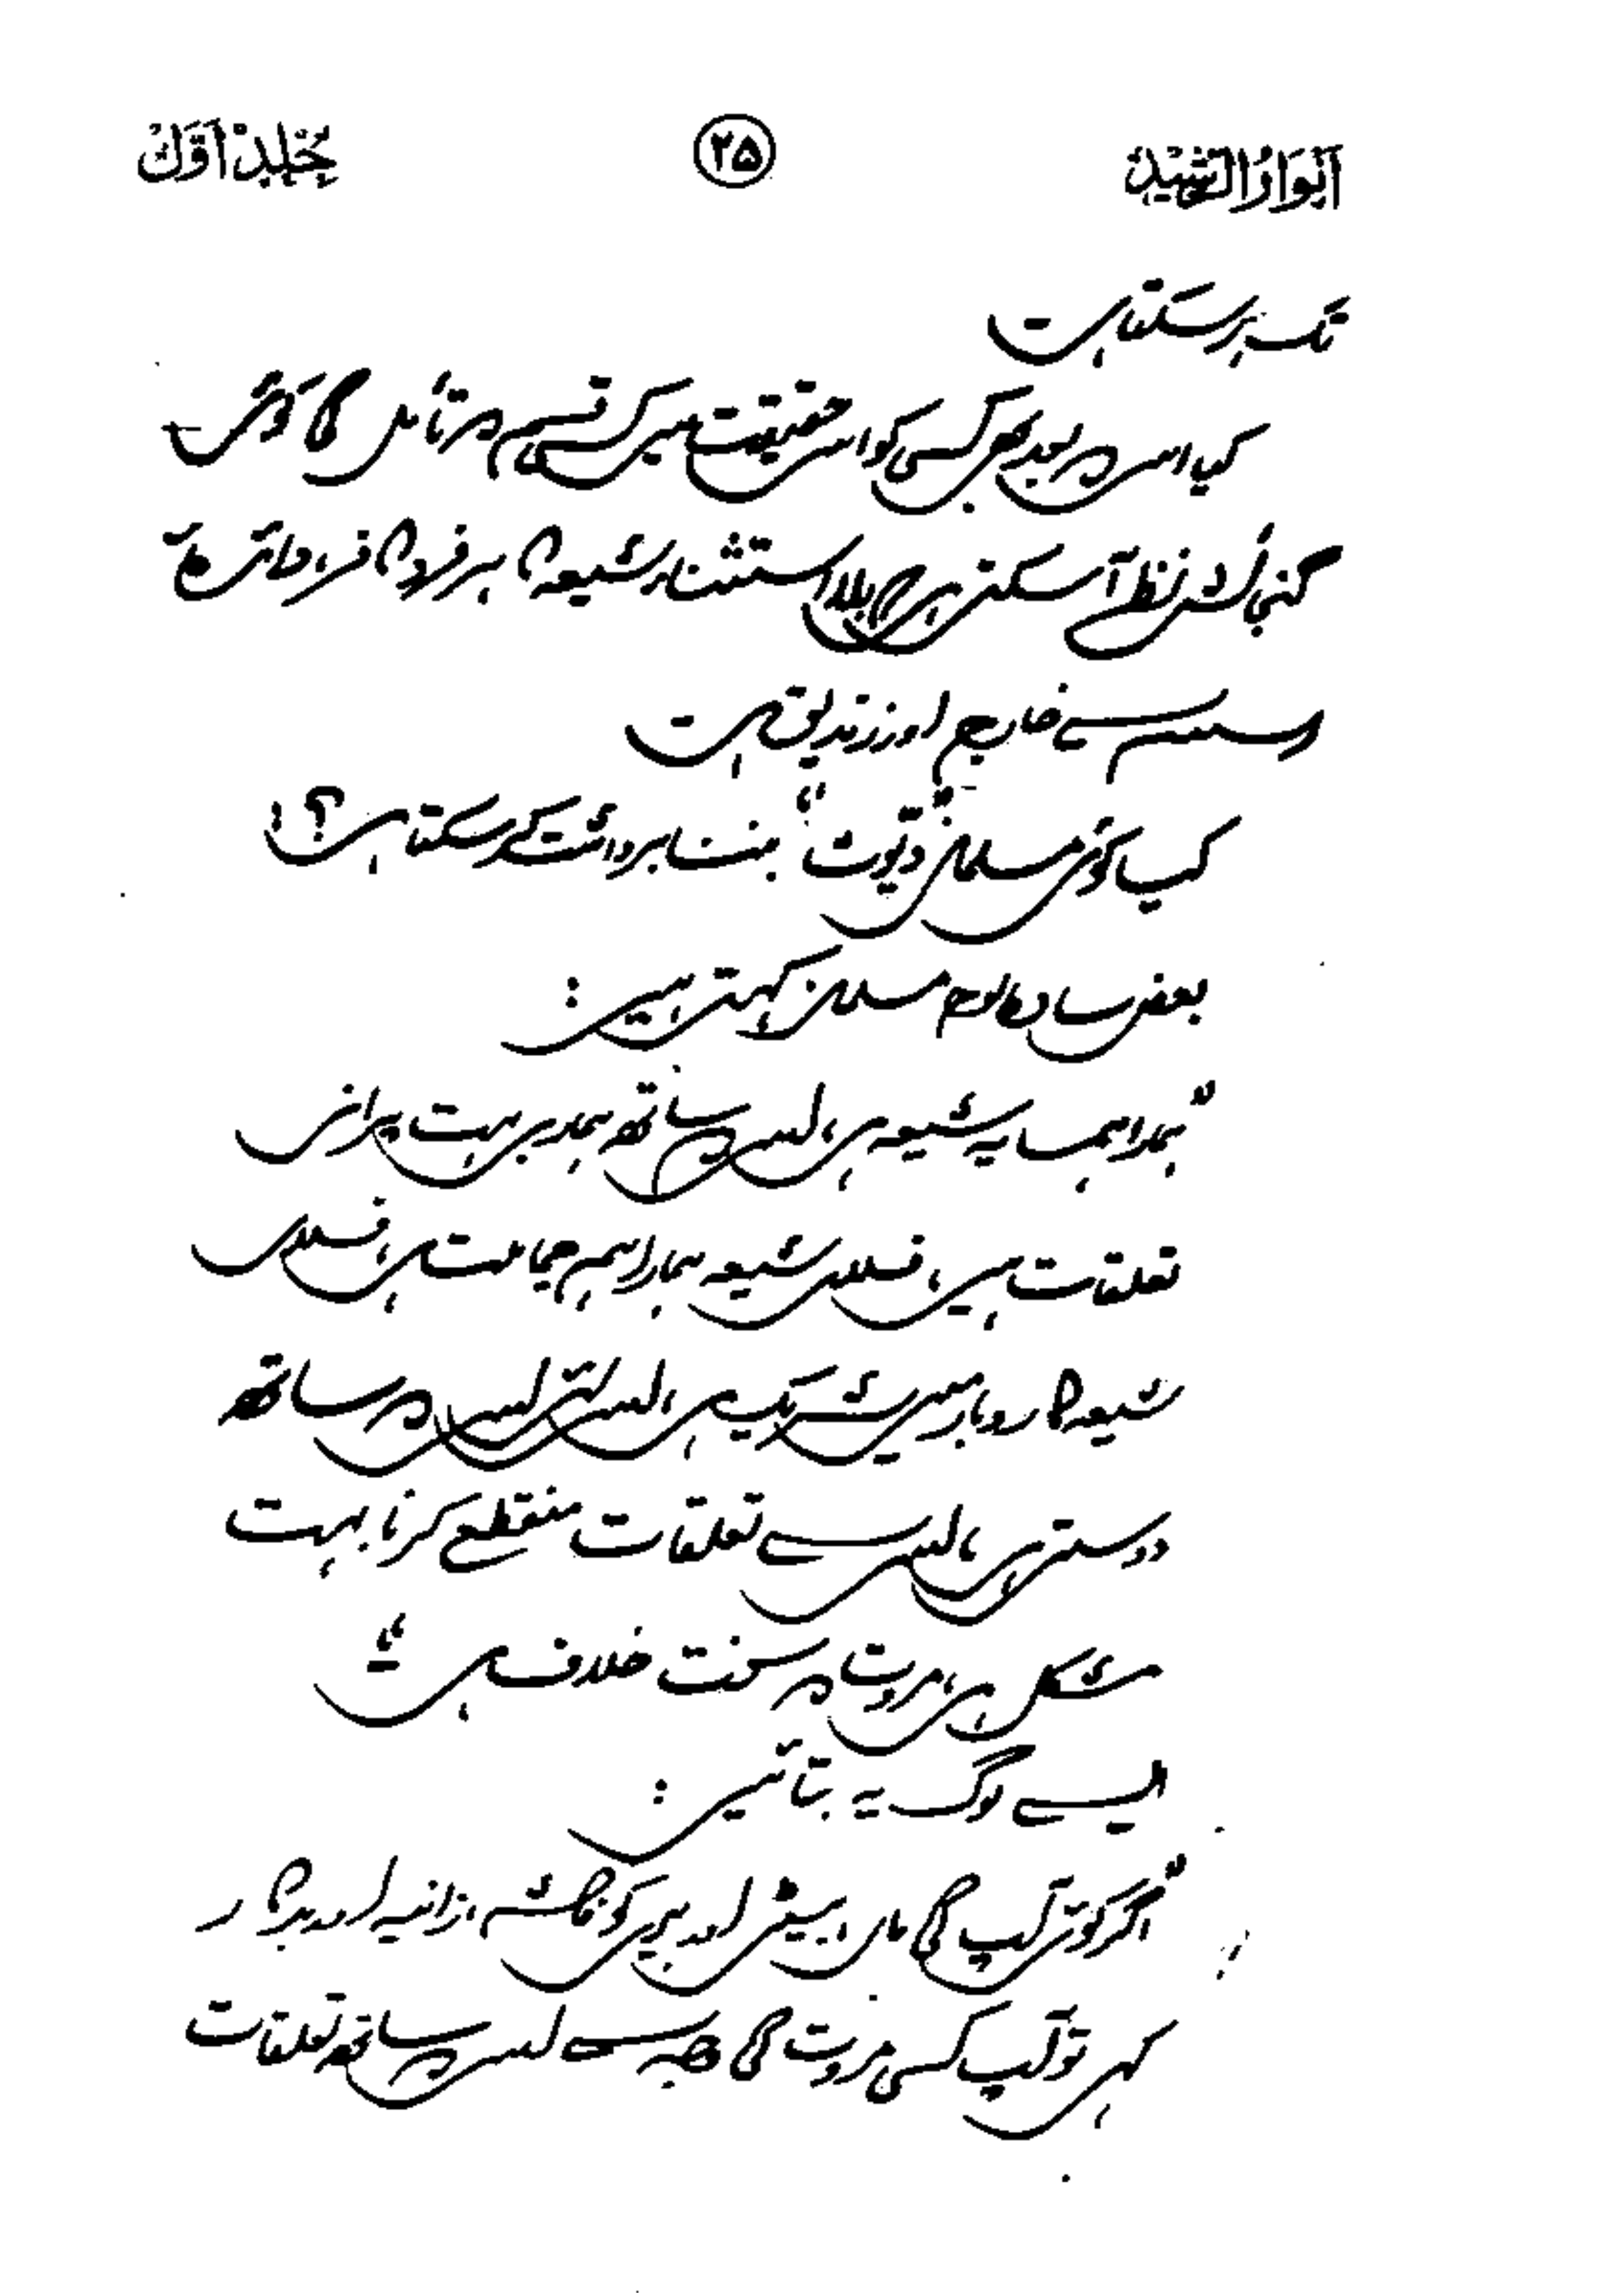 انوار الرشید ۲۵ جلد اول
تک ہو سکتا ہے
کیا اس کے بعد بھی کسی کو اس حقیقت میں کسی قسم کے تأمل کی کوئی
گنجائش نظر آ سکتی ہے کہ بلا استثناء شیعہ کا ہر فرد کافر، دائرۂ
اسلام سے خارج اور زندیق ہے
کیا کوئی مسلمان "دیّوث" بننا برداشت کر سکتا ہے؟
بعض سادہ لوح مسلمان کہتے ہیں :
"ہمارا ہمسایہ شیعہ ہے، اس کے ساتھ ہمارے بہت پرانے
تعلقات ہیں، فلاں شیعہ ہمارا ہم جماعت ہے، فلاں
شیعہ کاروبار میں شریک ہے، اس لئے اس کے ساتھ
دوستی ہے، اس سے تعلقات منقطع کرنا بہت
مشکل ہے، مروت کے سخت خلاف ہے"
ایسے لوگ یہ بتائیں :
"اگر کوئی آپ کی ماں، بیٹی اور بیوی کو فاحشہ، زانیہ اور بدکار
کہے تو آپ کسی مروت کی وجہ سے اس کے ساتھ تعلقات